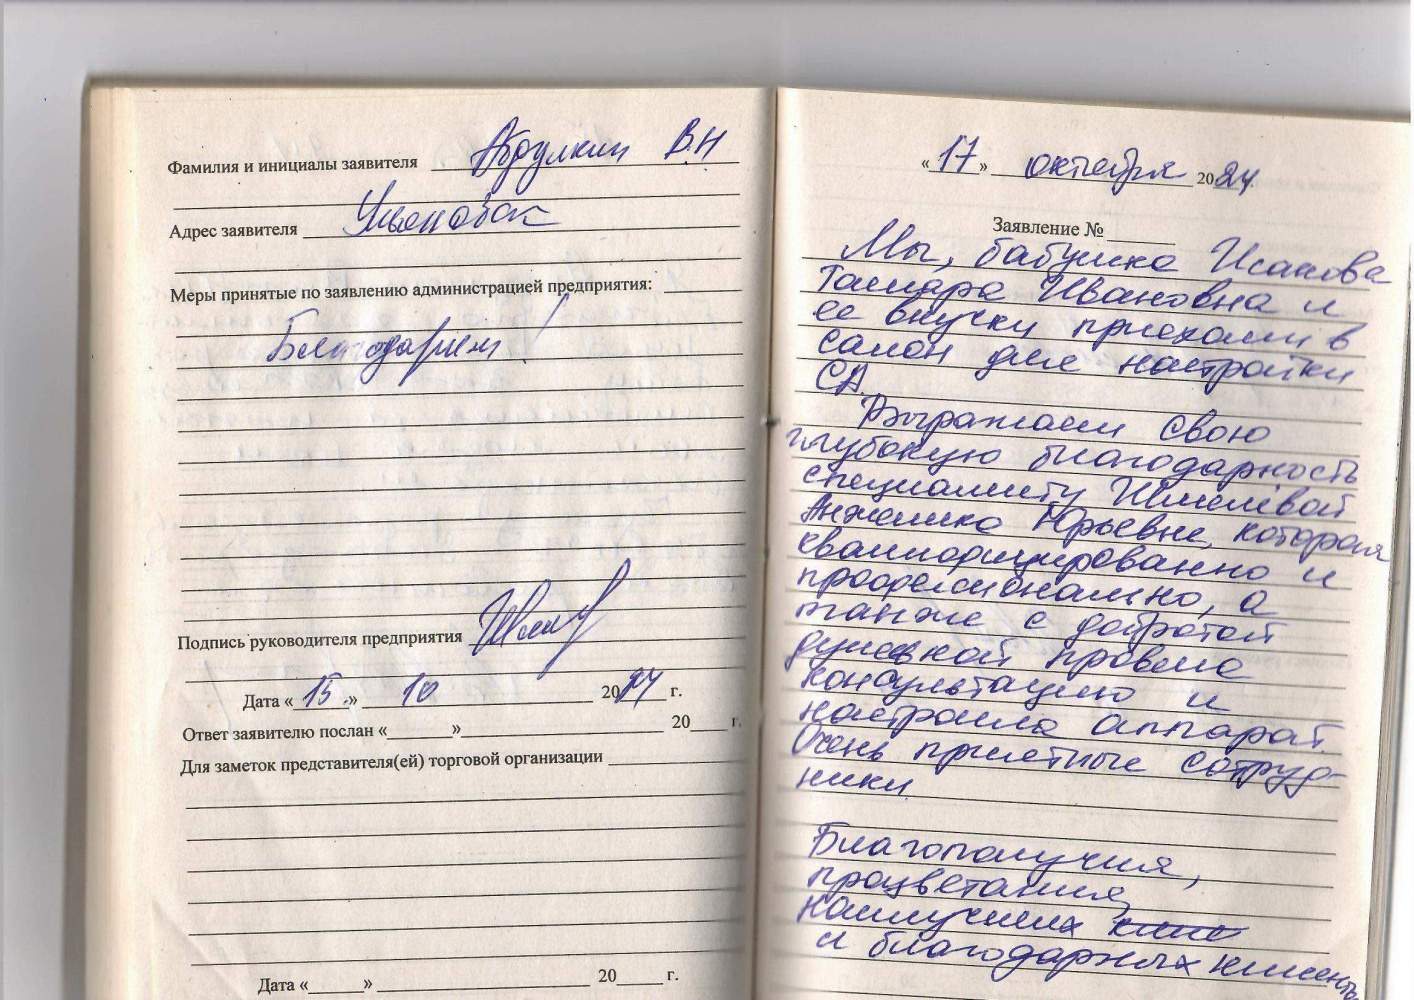 Фамилия и инициалы заявителя Абдулкин В.Н
Адрес заявителя Ульяновск
Меры принятые по заявлению администрацией предприятия:
Благодарим !
Подпись руководителя предприятия
Дата «15» 10 2024 г.
Ответ заявителю послан « » 20 г.
Для заметок представителя(ей) торговой организации
Дата « » 20 г.
«17» октября 2024.
Заявление №
Мы, бабушка Исакова
Тамара Ивановна и
ее внучки приехали в
салон для настройки
СА.
Выражаем свою
глубокую благодарность
специалисту Шмелёвой
Анжелике Юрьевне, которая
квалифицированно и
профессионально, а
также с добротой
душевной провела
консультацию и
настроила аппарат.
Очень приятные сотруд-
ники.
Благополучия,
процветания,
наилучших
и благодарных клиентов